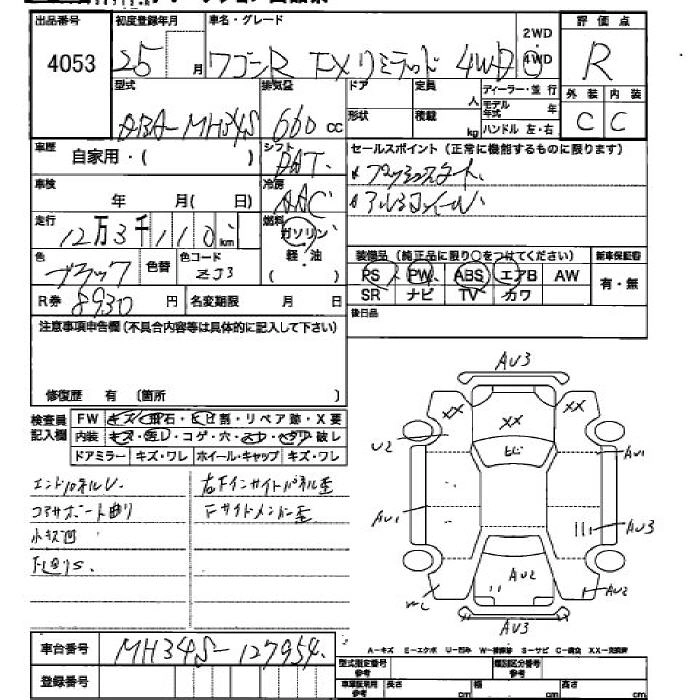 出品番号 初度登録年月 車名・グレード 評価点
4053 25 月 ワゴンR FXリミテッド 4WD 2WD 4WD R
型式 排気量 ドア 定員 人 ディーラー・並行 外装 内装
ABA-MH34S 660 cc 形状 積載 kg モデル年式 年 ハンドル 左・右 C C
車歴 自家用・( ) シフト DAT セールスポイント (正常に機能するものに限ります)
プッシュスタート
車検 年 月( 日) 冷房 AAC アルミホイール
走行 12万3千110 km 燃料 ガソリン
軽・油
( )
色 ブラック 色替 色コード ZJ3
装備品 (純正品に限り○をつけてください) 新車保証書
PS PW ABS エアB AW 有・無
SR ナビ TV カワ
R券 8930 円 名変期限 月 日
後日品
注意事項申告欄(不具合内容等は具体的に記入して下さい)
修復歴 有 (箇所 )
検査員記入欄 FW キズ・飛石・ヒビ割・リペア跡・X要
内装 キズ・汚レ・コゲ・穴・スレ・ヘタリ・破レ
ドアミラー キズ・ワレ ホイール・キャップ キズ・ワレ
エンドパネルU 右Fインサイドパネル歪
コアサポート曲り Fサイドメンバー歪
小キズ凹
AU3
XX XX XX
ヒビ
U2 AU1
AU1 AU3
AU2 AU2
AU3
車台番号 MH34S-127954
登録番号
A-キズ E-エクボ U-凹み W-補修跡 S-サビ C-腐食 XX-交換済
型式指定番号 参考 類別区分番号 参考
車検証用 参考 長さ cm 幅 cm 高さ cm